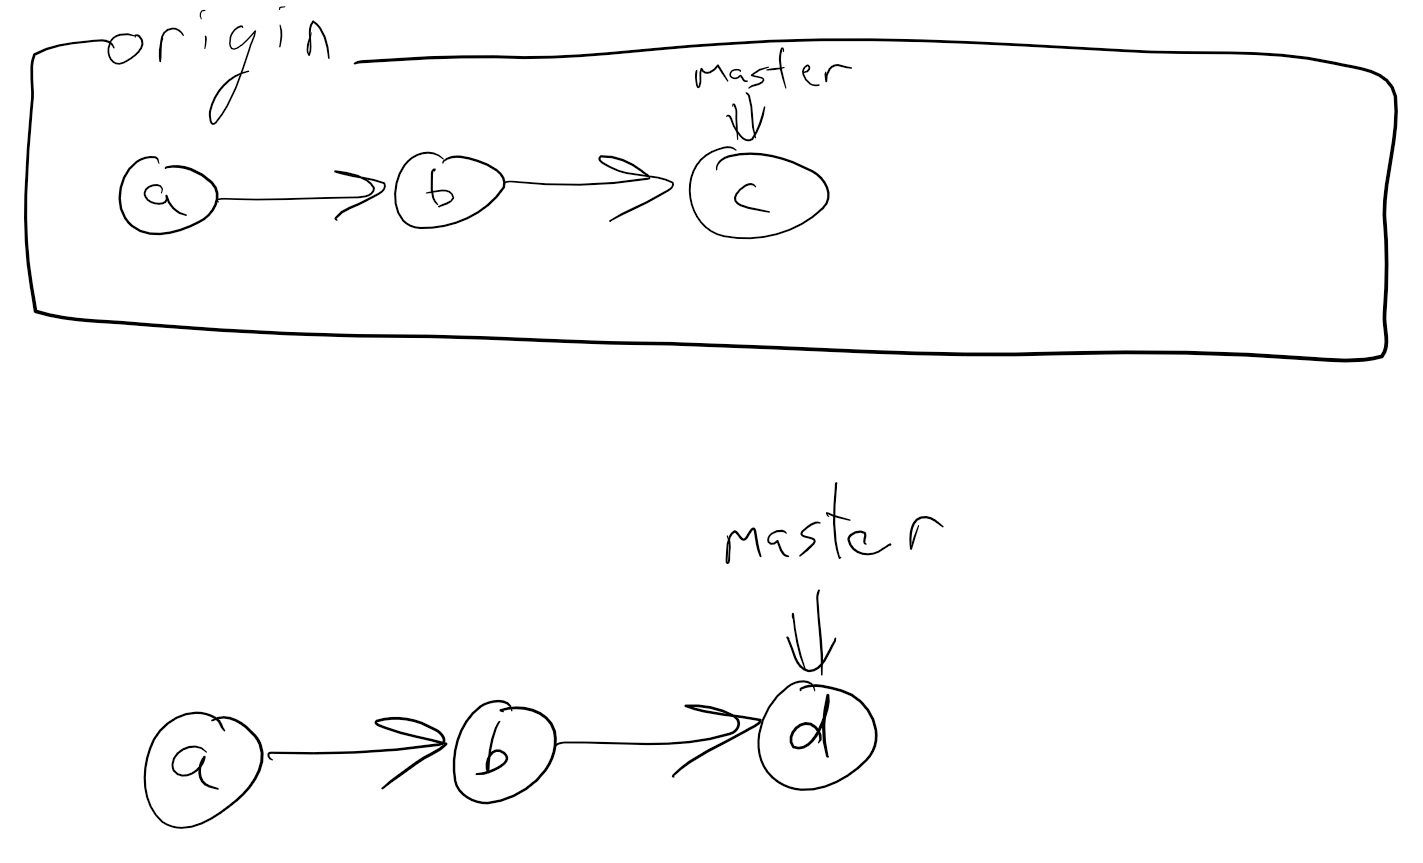 origin
master
a b c
master
a b d